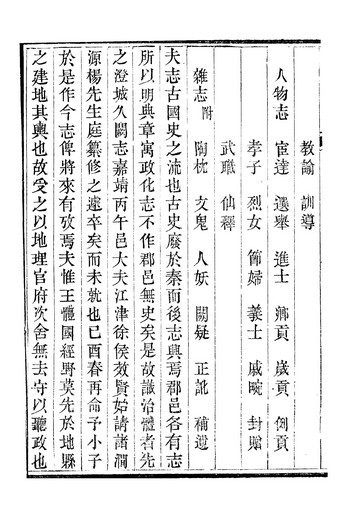 教諭 訓導
人物志 宦達 選舉 進士 鄉貢 歲貢 例貢
孝子 烈女 節婦 義士 戚畹 封贈
武職 仙釋
雜志附 陶枕 文鬼 人妖 闕疑 正訛 補遺
夫志古國史之流也古史廢於秦而後志興焉郡邑各有志
所以明典章寓政化志不作郡邑無史矣是故識治體者先
之澄城久闕志嘉靖丙午邑大夫江津徐侯效賢始請諸澗
源楊先生庭纂修之遽卒矣而未就也己酉春再命予小子
於是作今志俾將來有攷焉夫惟王體國經野莫先於地縣
之建地其輿也故受之以地理官府次舍無去守以聽政也